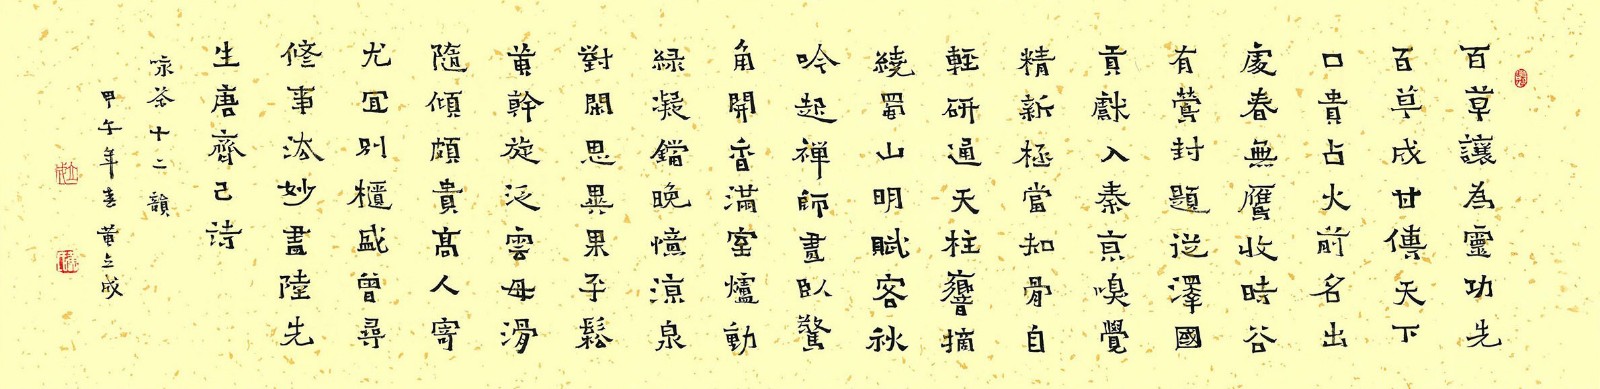 百草讓為靈功先
百草成甘傳天下
口貴占火前名出
處春無鷹收時谷
有鶯封題從澤國
貢獻入秦京嗅覺
精新極當知骨自
輕研通天柱響摘
繞蜀山明賦客秋
吟起禅師晝臥驚
角開香滿室爐動
緑凝鐺晚憶涼泉
對閑思異果平鬆
黄幹旋泛雲母滑
隨傾頗貴高人寄
尤宜別櫃盛曾尋
修事法妙盡陸先
生唐齊己诗
詠茶十二韻
甲午年春黄立成